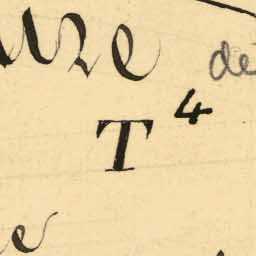 ure
de
T 4
e